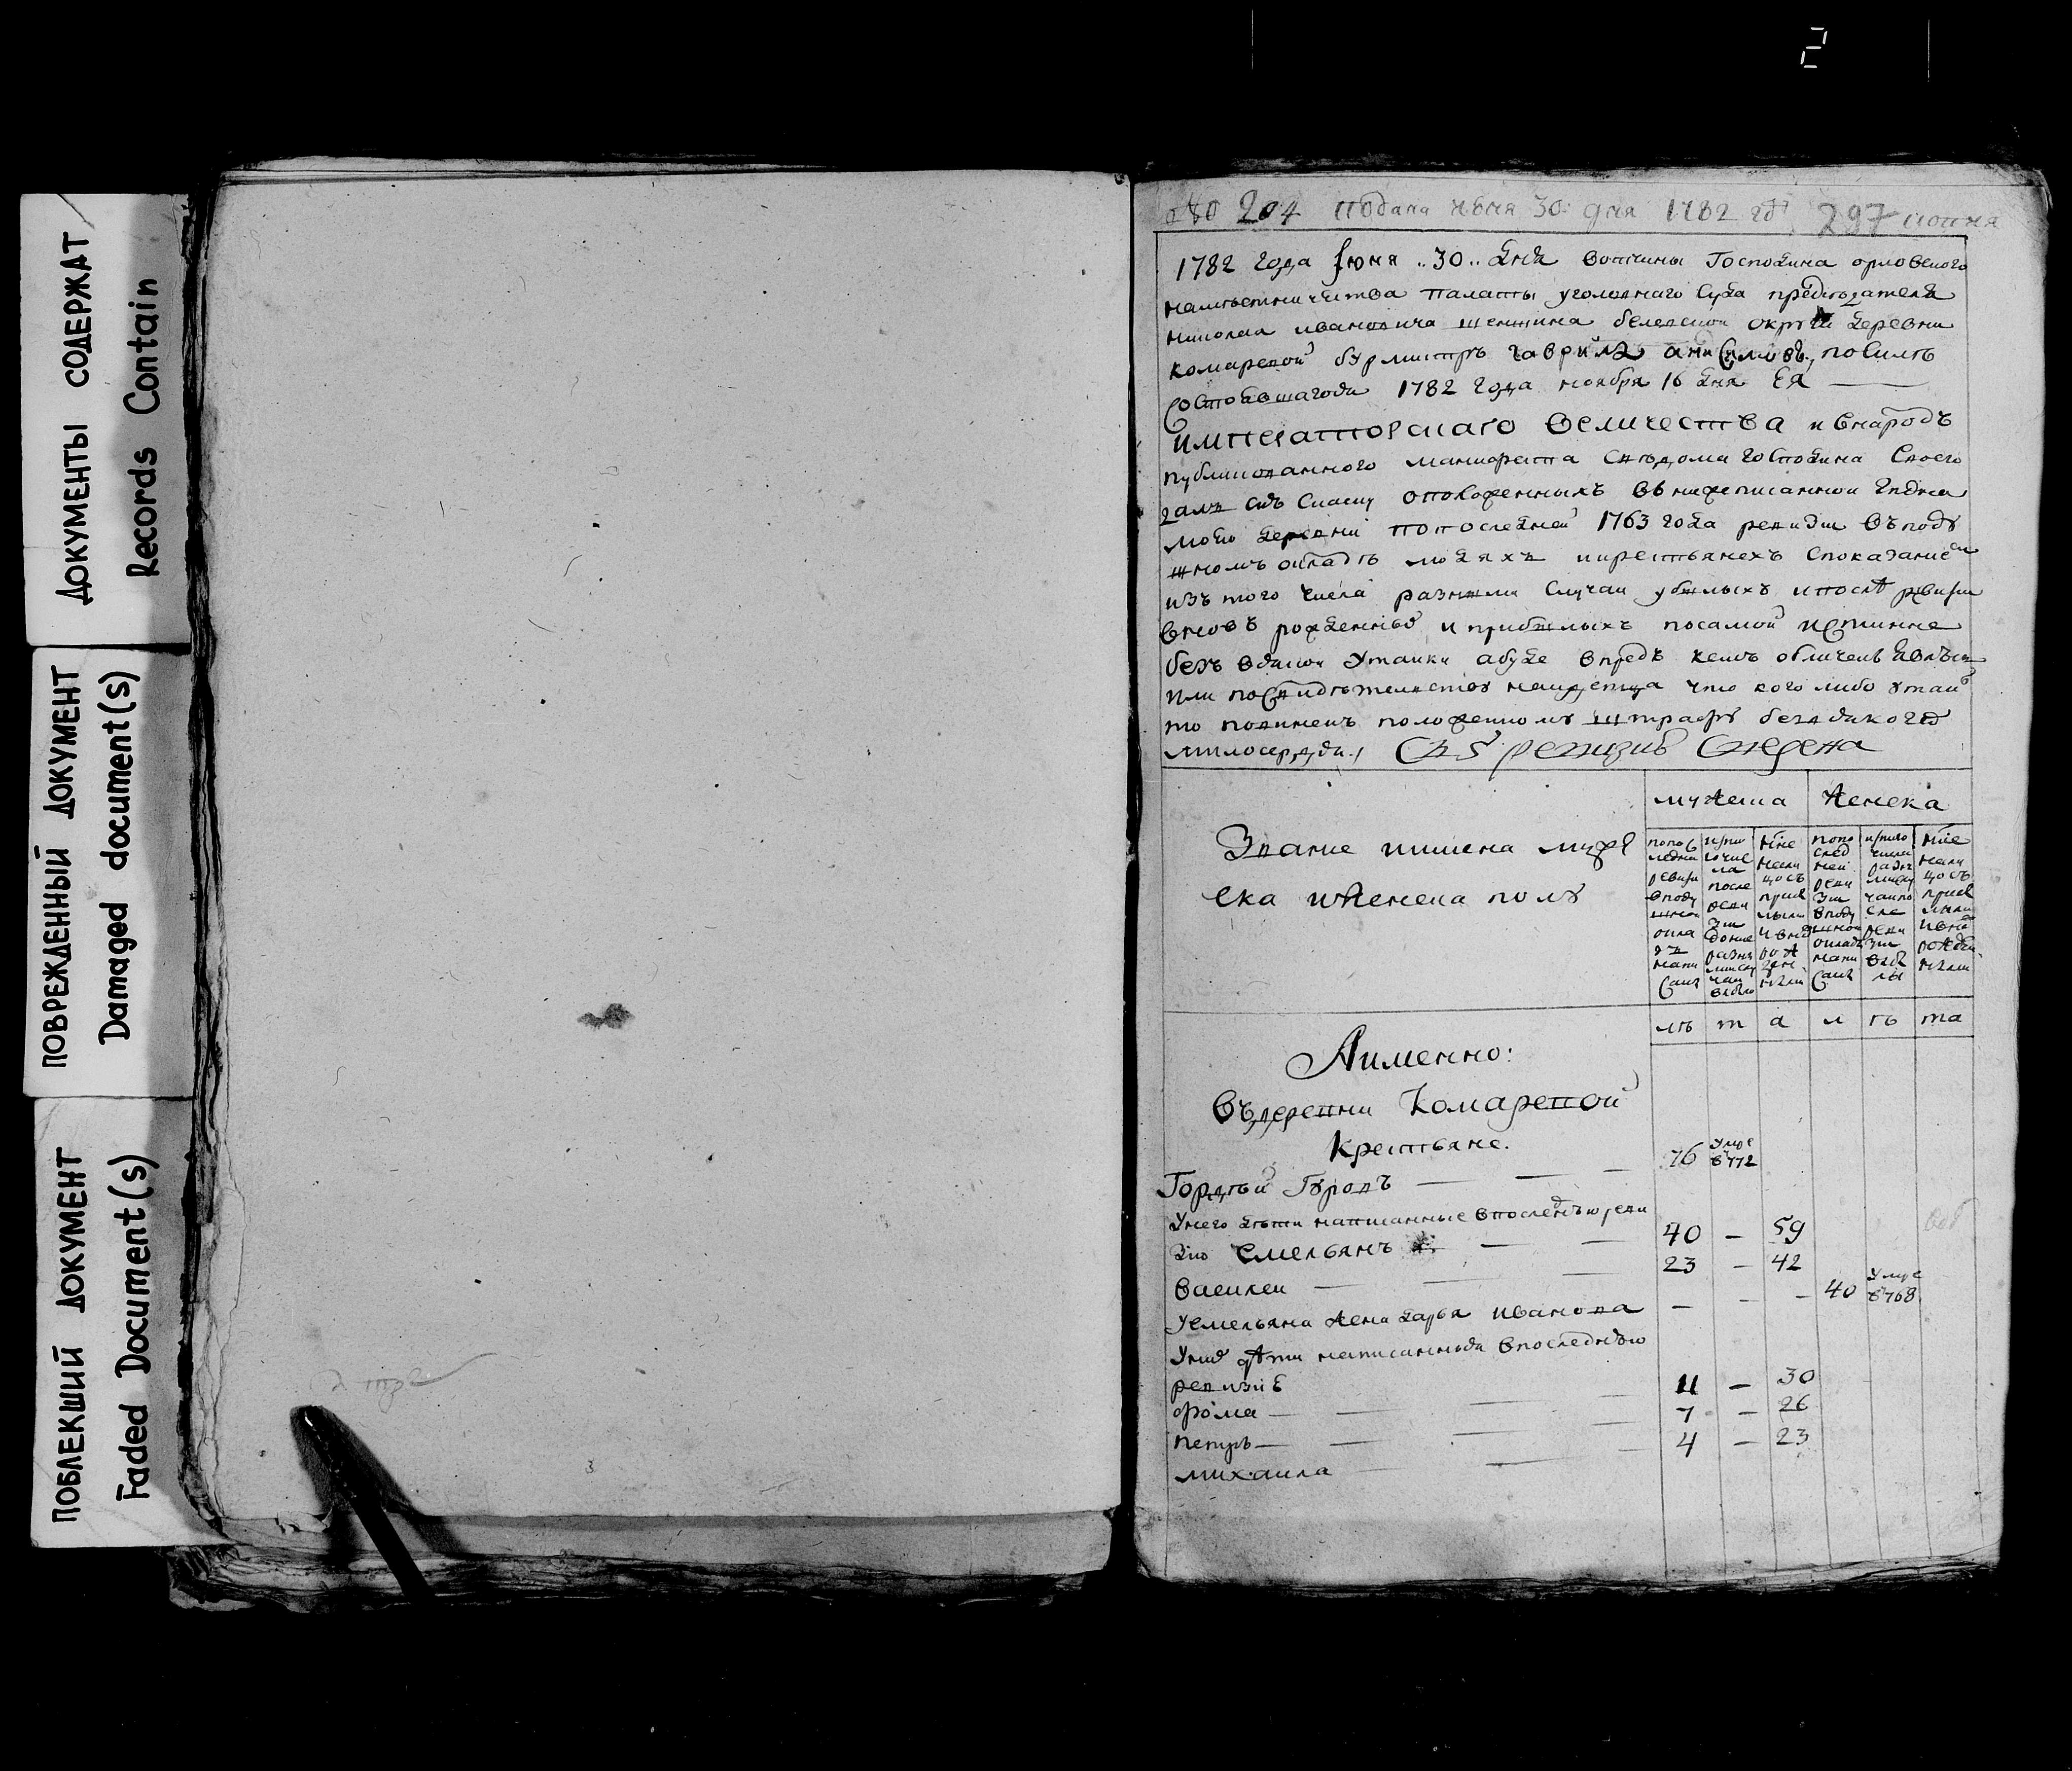 2
ДОКУМЕНТЫ СОДЕРЖАТ
Records Contain
ПОВРЕЖДЕННЫЙ ДОКУМЕНТ
Damaged document(s)
ПОБЛЕКШИЙ ДОКУМЕНТ
Faded Document(s)
№ 204 подана июня 30: дня 1782 год 297
1782 года Июня ..30.. дня вотчины Господина орловскаго
наместничества палаты уголовнаго суда председателя
николая ивановича шеншина белевской округи деревни
комаревой бурмистръ гаврила анисимовъ, посилѣ
состоявшагося 1782 года ноября 16 дня ЕЯ
императорскаго величества и внародъ
публикованнаго манифеста сведома господина своего
далъ сию скаску оположенныхъ вънижеписанной
деревни попоследней 1763 года ревизии въподу
шномъ окладѣ людяхъ икрестьянехъ споказаниемъ
изъ того числа разными случаи убылыхъ ипослѣ ревизии
вновь рожденныхъ и прибылыхъ посамой истинне
безъ всякои утаики абуде впредь кемъ обличенъ явлюсь
или посвидѣтельству найдетца что кого либо утаилъ
то повиненъ положенному штрафу безъ всякого
милосердия.
съ ревизиею сведена
мужеска женска
Звание имена муже
ска иженска полу
попоследней ревизии вподушной окладъ написанных
изтого числа после ревизии разными случаи выбыло
ныне налицо съ прибылыми ивновь рожденными
попоследней ревизии вподушной окладъ написанных
изтого числа разными случаи после ревизии выбыли
ныне налицо съ прибылыми ивновь рожденными
лѣ т а л ѣ та
Аименно:
въдеревни Комаревой
крестьяне.
Гордѣй Гуровъ 76 умре в 772
Унего дѣти написанные впоследнею реви
зию Емельянъ 40 — 59
василеи 23 — 42
Уемельяна жена дарья иванова — — — 40 Умре в 768
Унихъ дѣти написанныя впоследнею
ревизиѣ
фома 11 — 30
петръ 7 — 26
михаила 4 — 23